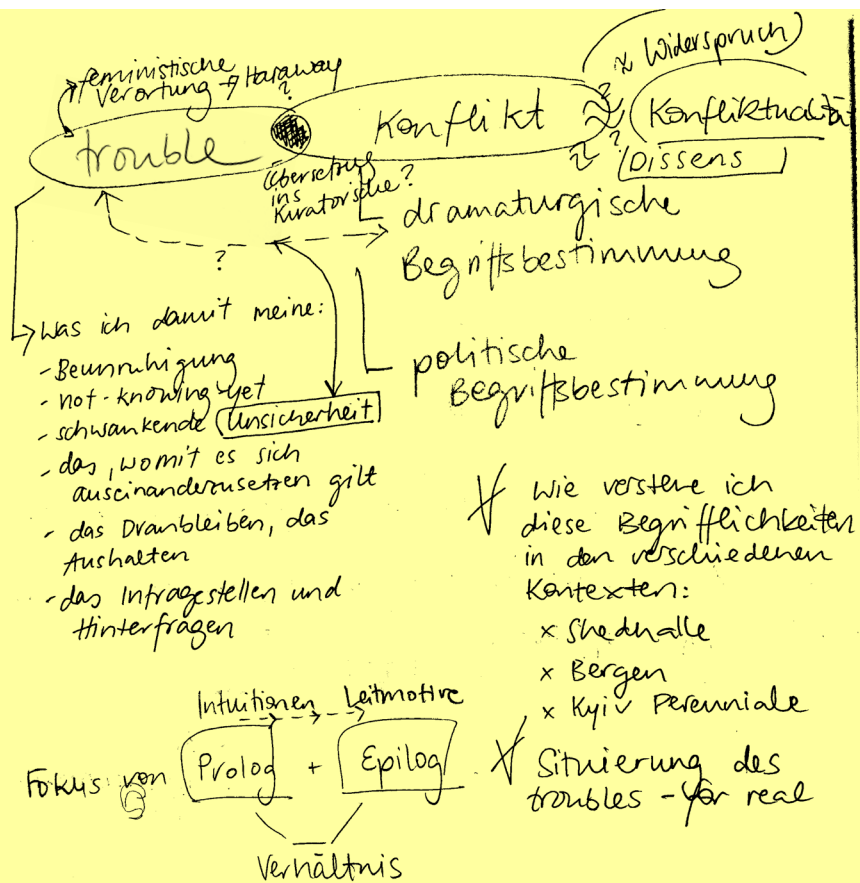 ≈ Widerspruch
feministische
Verortung → Haraway
?
trouble
Konflikt
≈ ?
Konfliktualitä
≈ ?
Dissens
Übersetzung
ins
Kuratorische?
?
dramaturgische
Begriffsbestimmung
politische
Begriffsbestimmung
Was ich damit meine:
- Beunruhigung
- not-knowing-yet
- schwankende Unsicherheit
- das, womit es sich
auseinanderzusetzen gilt
- das Dranbleiben, das
Aushalten
- das Infragestellen und
Hinterfragen
Wie verstehe ich
diese Begrifflichkeiten
in den verschiedenen
Kontexten:
x Shedhalle
x Bergen
x Kyiv Perenniale
Situierung des
troubles - for real
Intuitionen → Leitmotive
Fokus von Prolog + Epilog
Verhältnis